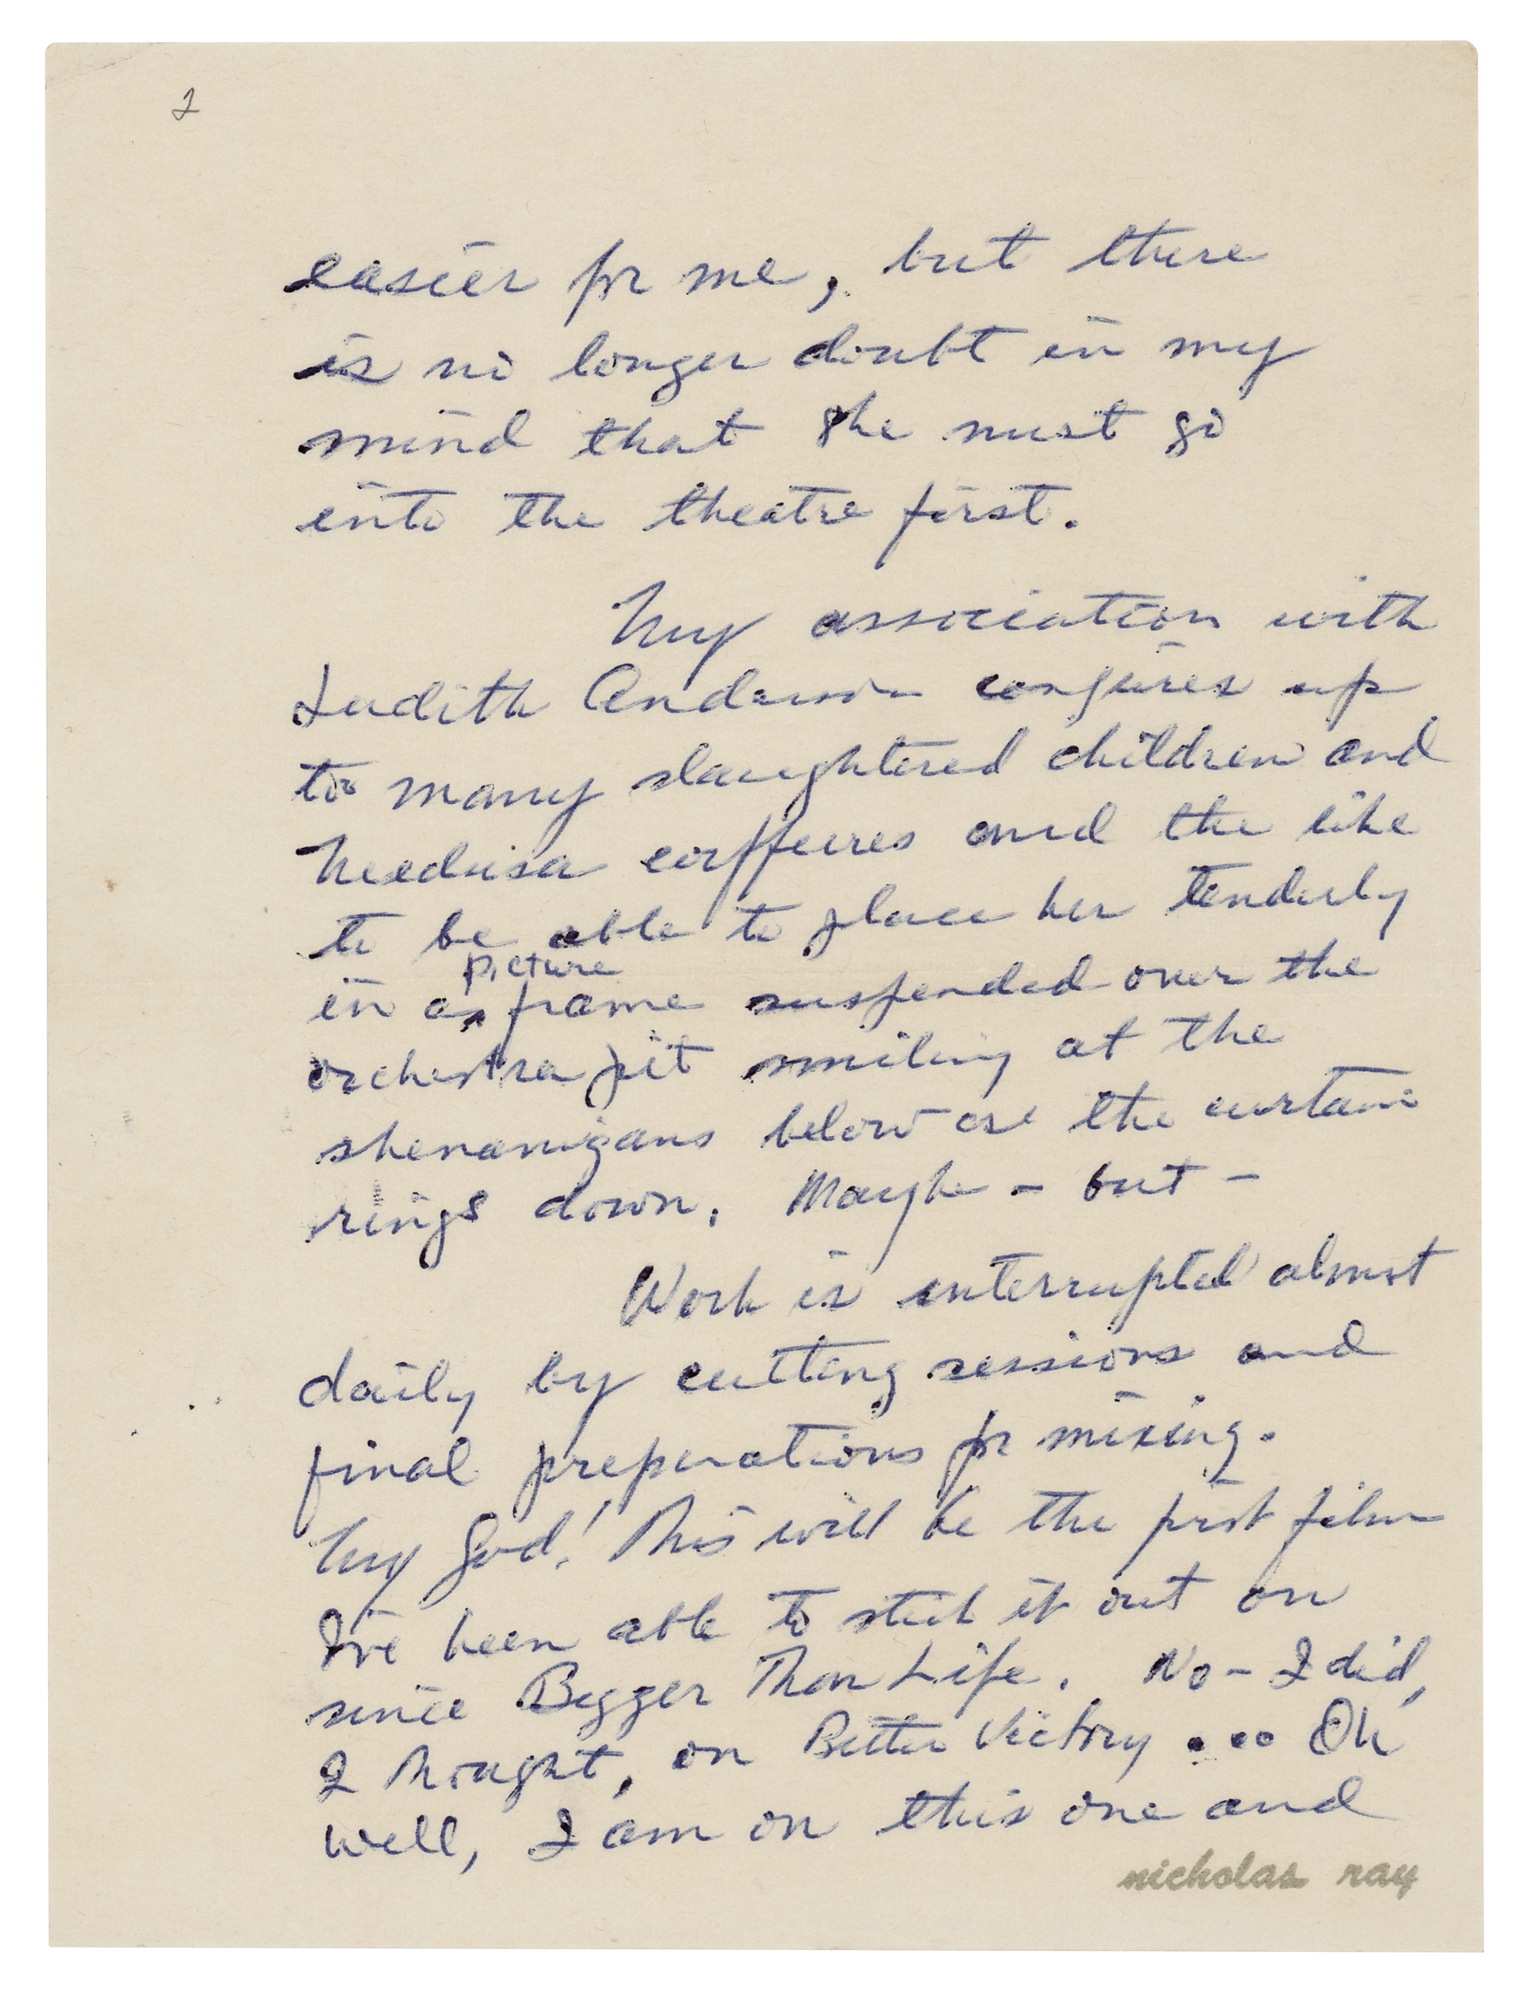 2
easier for me, but there
is no longer doubt in my
mind that she must go
into the theatre first.
My association with
Judith Anderson conjures up
too many slaughtered children and
Medusa coiffeures and the like
to be able to place her tenderly
in a picture frame suspended over the
orchestra pit smiling at the
shenanigans below as the curtain
rings down. Maybe - but -
Work is interrupted almost
daily by cutting sessions and
final preparations for mixing.
My God! This will be the first film
I've been able to stick it out on
since Bigger Than Life. No - I did,
I thought, on Bitter Victory ... Oh
well, I am on this one and
nicholas ray